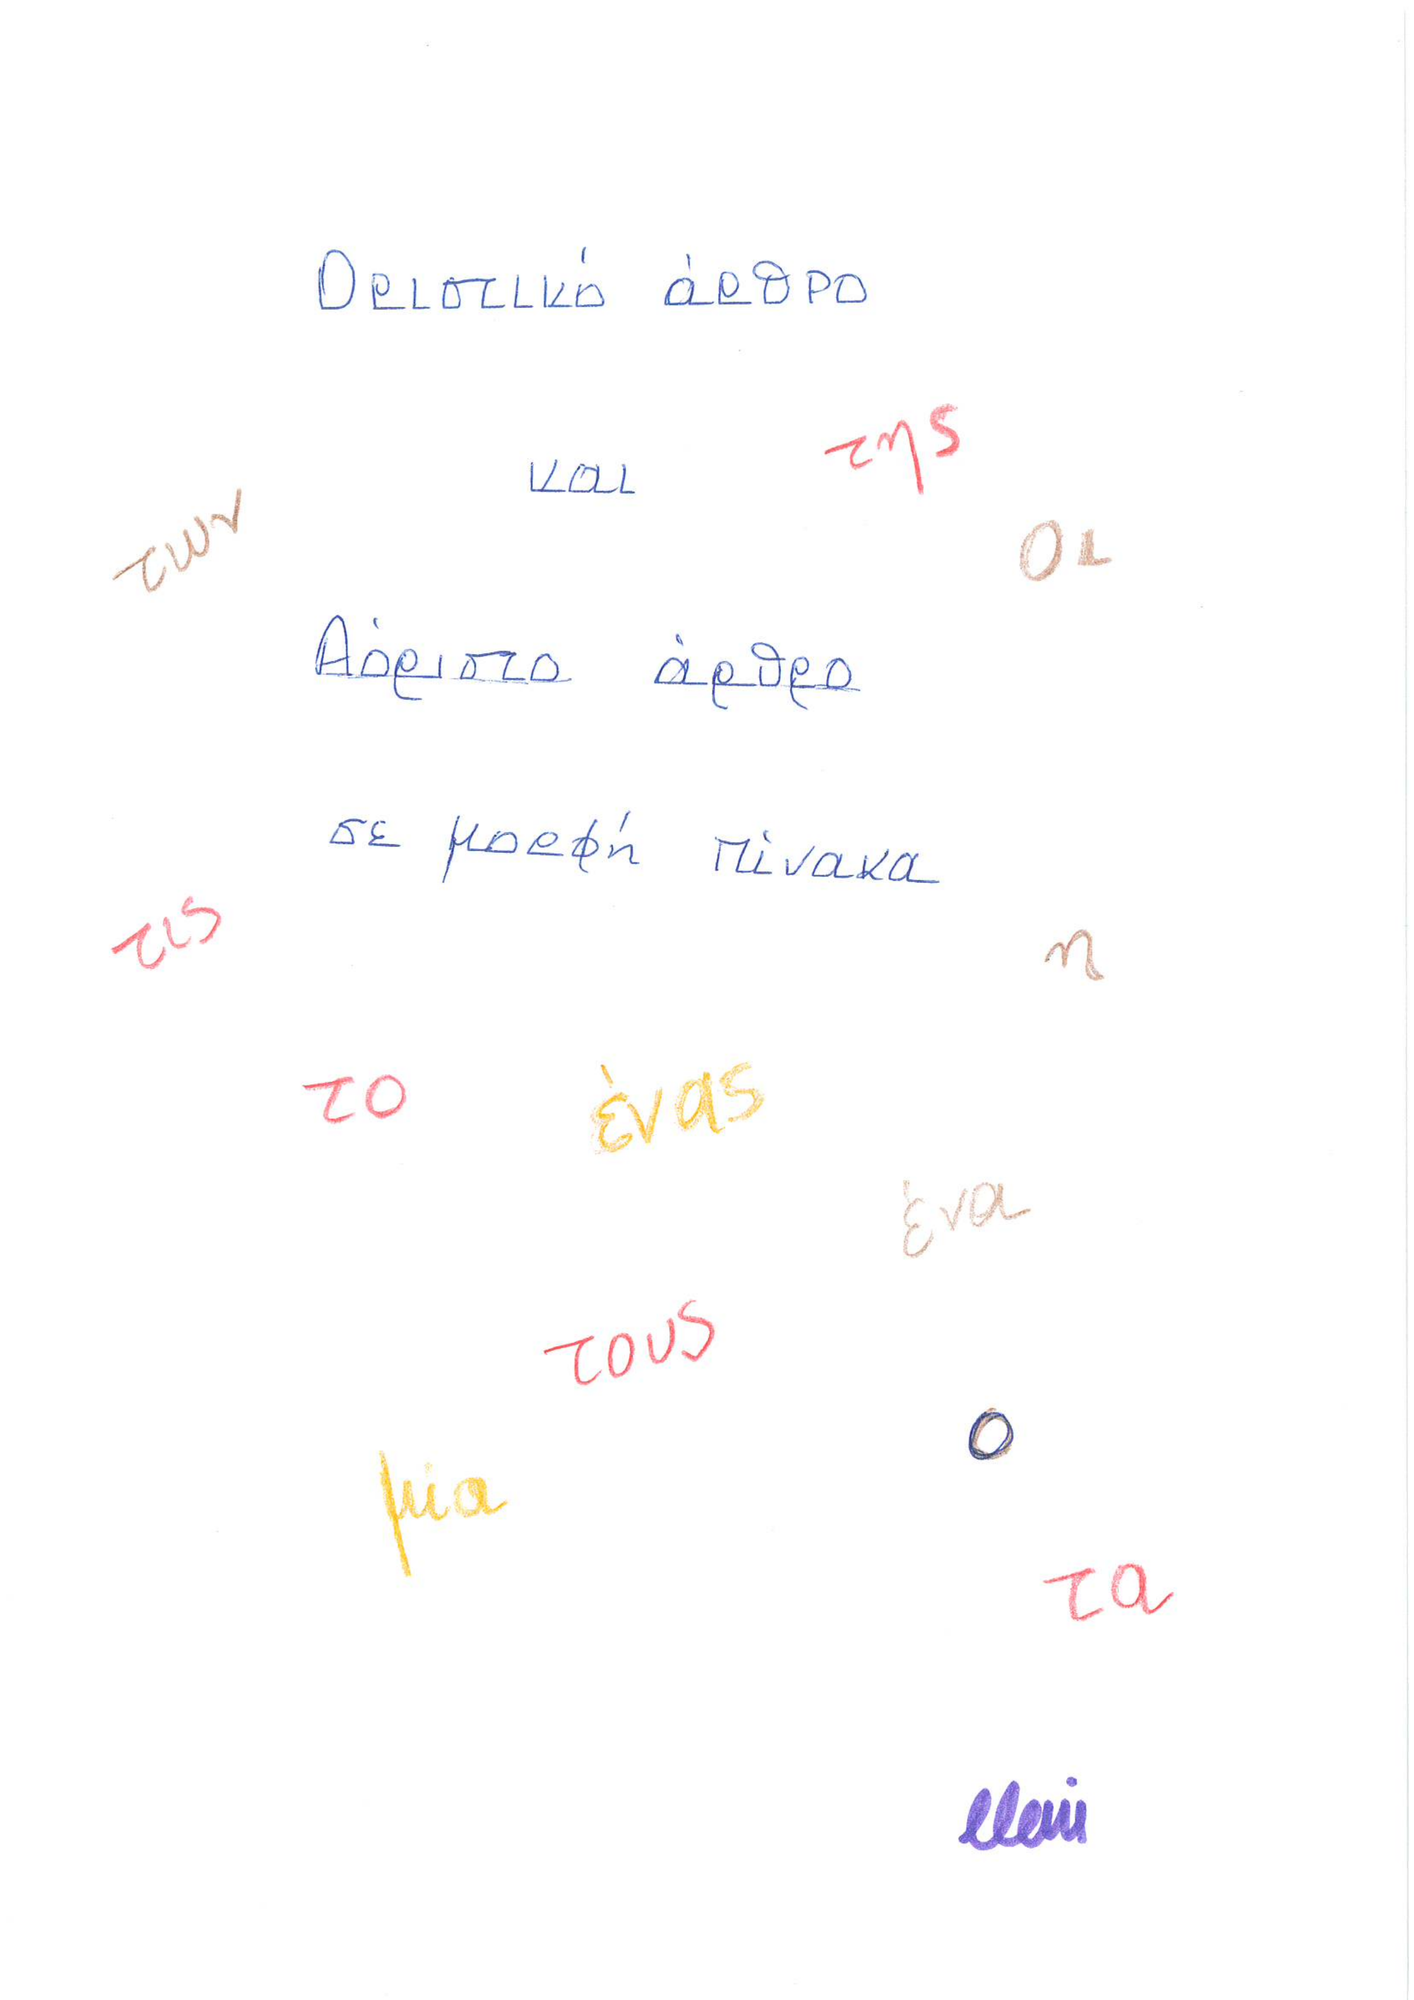 Οριστικό άρθρο
της
και
των
οι
Αόριστο άρθρο
σε μορφή πίνακα
τις
η
το ένας
ένα
τους
ο
μία
τα
eleni